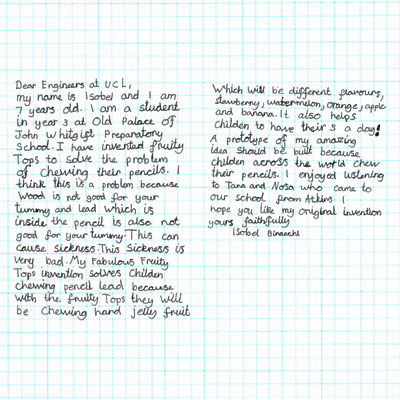 Dear Engineers at UCL,
my name is Isobel and I am
7 years old. I am a student
in year 3 at Old Palace of
John Whitgift Preparatory
School. I have invented fruity
Tops to solve the problem
of chewing their pencils. I
think this is a problem because
Wood is not good for your
tummy and lead which is
inside the pencil is also not
good for your tummy. This can
cause Sickness. This Sickness is
very bad. My Fabulous Fruity
Tops invention solves Childen
chewing pencil lead because
with the fruity Tops they will
be chewing hard jelly fruit
Which will be different flavours,
stawberry, watermelon, orange, apple
and banana. It also helps
Childen to have their 5 a day!
A prototype of my amazing
idea Should be built because
childen across the world chew
their pencils. I enjoyed listening
to Tana and Nosa who came to
our school from Atkins. I
hope you like my original invention
yours faithfully
Isobel